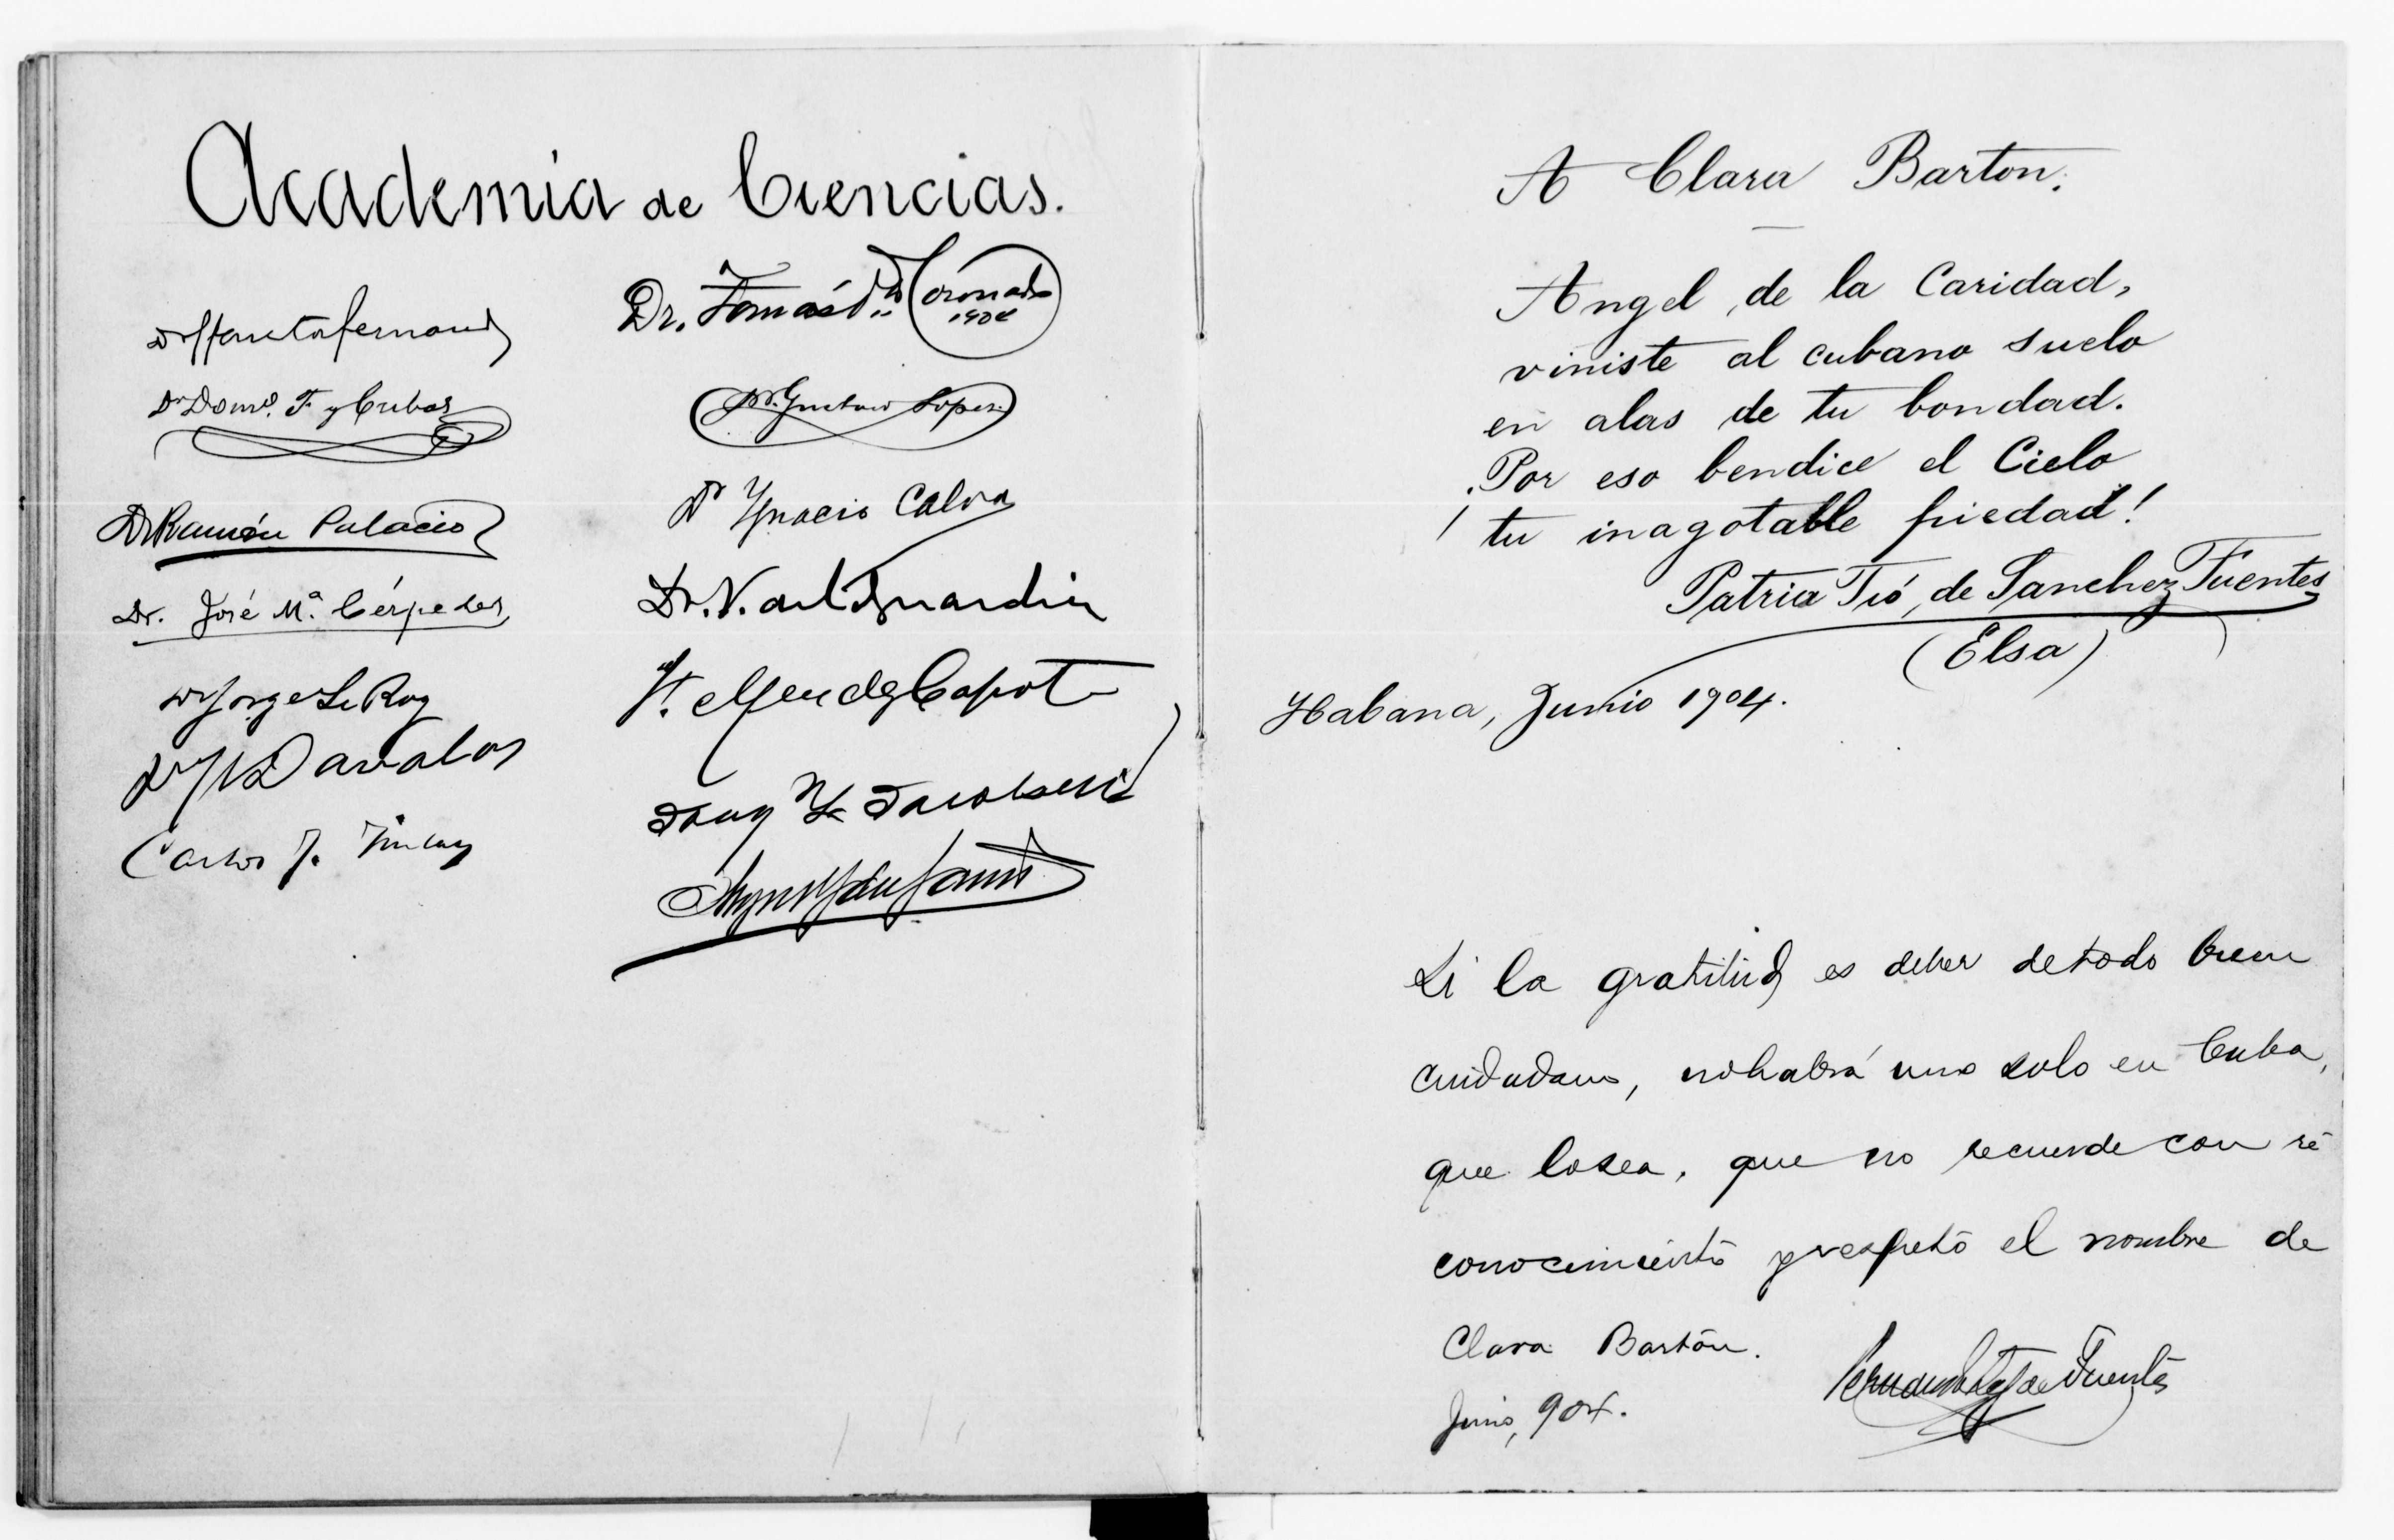 Academia de Ciencias.
Dr Santos Fernandez
Dr Domº. F. y Cubas
Dr Ramón Palacio
Dr. José Mª. Céspedes
Dr Jorge Le Roy
Dr Davalos
Carlos J. Finlay
Dr. Tomás V. Coronado
1904
Dr. Gustavo Lopez
Dr Ygnacio Calvo
Dr. V. de la Guardia
F. Mendez Capote
A Clara Barton.
Angel de la Caridad,
viniste al cubano suelo
en alas de tu bondad.
Por eso bendice el Cielo
¡ tu inagotable piedad!
Patria Tió, de Sanchez Fuentes
(Elsa)
Habana, Junio 1904.
Si la gratitud es deber de todo buen
ciudadano, no habrá uno solo en Cuba,
que lo sea, que no recuerde con re
conocimiento y respeto el nombre de
Clara Barton.
de Fuentes
Junio, 904.